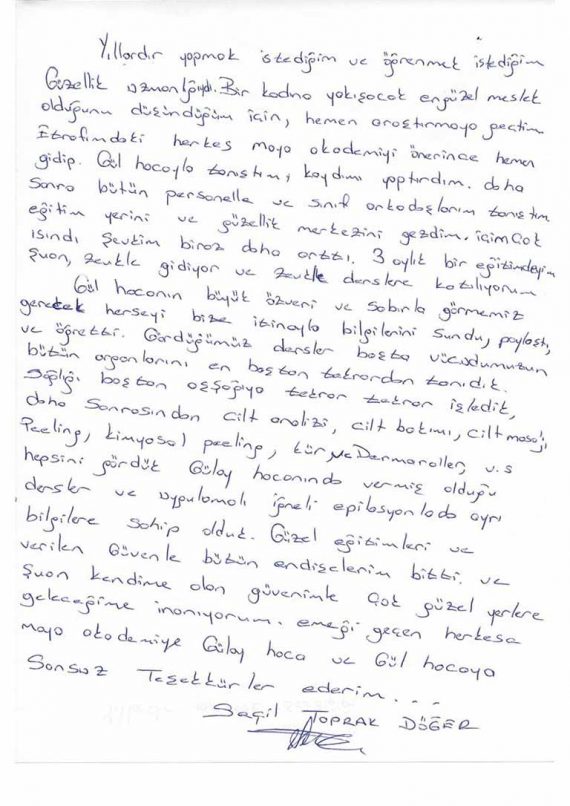 Yıllardır yapmak istediğim ve öğrenmek istediğim
Güzellik uzmanlığıydı. Bir kadına yakışacak en güzel meslek
olduğunu düşündüğüm için, hemen araştırmaya geçtim
Etrafımdaki herkes maya akademiyi önerince hemen
gidip. Gül hocayla tanıştım, kaydımı yaptırdım. daha
Sonra bütün personelle ve sınıf arkadaşlarım tanıştım
eğitim yerini ve güzellik merkezini gezdim. içim Çok
ısındı Şevkim biraz daha arttı. 3 aylık bir eğitimdeyim
Şuan, zevkle gidiyor ve zevkle derslere katılıyorum
Gül hocanın büyük özveri ve sabırla görmemiz
gerekek herşeyi bize itinayla bilgilerini Sundu, paylaştı,
ve öğretti. Gördüğümüz dersler başta vücudumuzun
bütün organlarını en baştan tekrardan tanıdık.
Sağlığı baştan aşşağıya tekrar tekrar işledik,
daha Sonrasından cilt analizi, cilt bakımı, cilt masajı
Peeling, kimyasal peeling, kür, ve Dermaroller, v.s
hepsini gördük Gülay hocanında vermiş olduğu
dersler ve uygulamalı iğneli epilasyonlada ayrı
bilgilere sahip olduk. Güzel eğitimleri ve
verilen Güvenle bütün endişelerim bitti. ve
Şuan kendime olan güvenimle Çok güzel yerlere
geleceğime inanıyorum. emeği geçen herkese
maya akademiye Gülay hoca ve Gül hocaya
Sonsuz Teşekkürler ederim...
Seçil TOPRAK DÖĞER